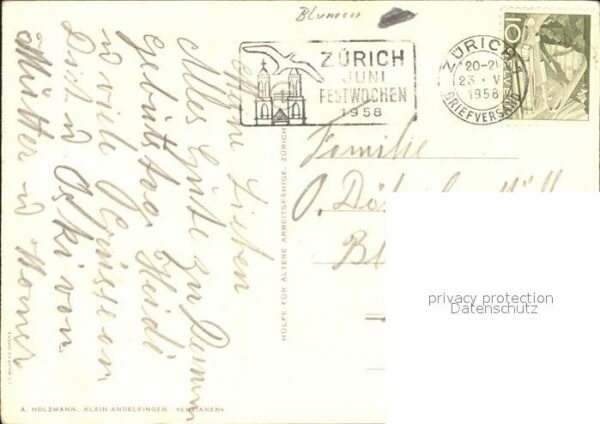 Blumen
ZÜRICH
JUNI
FESTWOCHEN
1958
ZÜRICH
20-21
23·V
1958
BRIEFVERSAND
10
HELVETIA
Meine Lieben
Alles Gute zu Deinem
Geburtstag Heidi
u viele Grüsse an
Dich u Oski von
Mutter u
HÜLFE FÜR ÄLTERE ARBEITSFÄHIGE, ZÜRICH
Familie
O.
A. HOLZMANN, KLEIN ANDELFINGEN «ENZIANEN»
privacy protection
Datenschutz